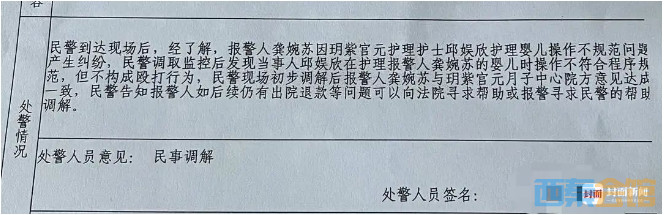 容
处警情况
民警到达现场后，经了解，报警人龚婉苏因玥紫官元护理护士邱娱欣护理婴儿操作不规范问题
产生纠纷，民警调取监控后发现当事人邱娱欣在护理报警人龚婉苏的婴儿时操作不符合程序规
范，但不构成殴打行为，民警现场初步调解后报警人龚婉苏与玥紫官元月子中心院方意见达成
一致，民警告知报警人如后续仍有出院退款等问题可以向法院寻求帮助或报警寻求民警的帮助
调解。
处警人员意见： 民事调解
处警人员签名：
封面 封面新闻